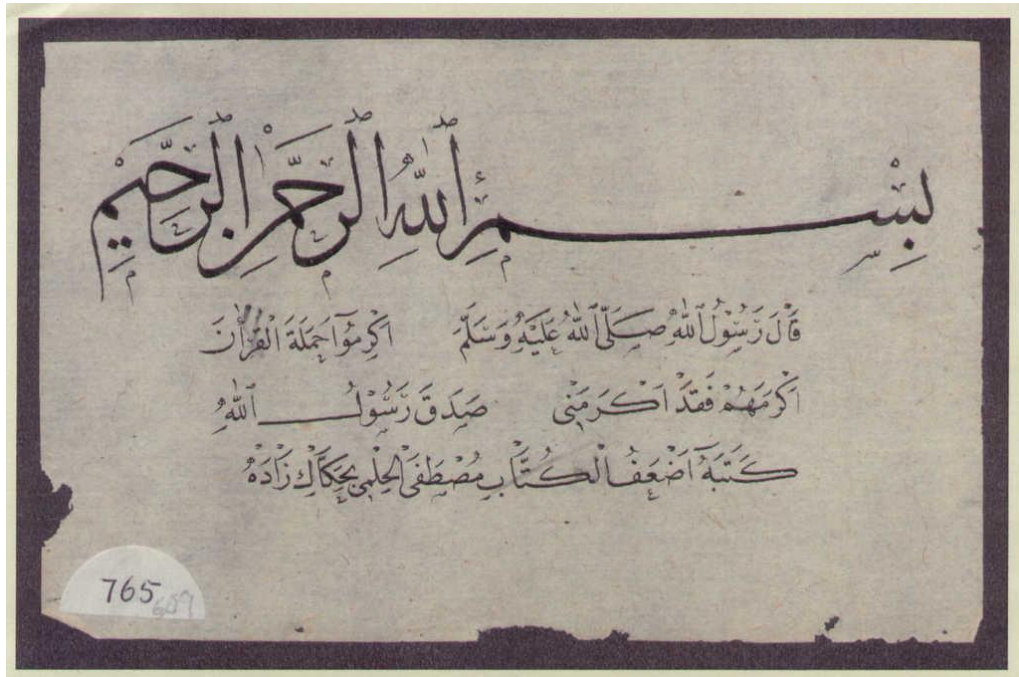 بِسْمِ ٱللّٰهِ ٱلرَّحْمٰنِ ٱلرَّحِيْمِ
قَالَ رَسُوْلُ ٱللّٰهِ صَلَّى ٱللّٰهُ عَلَيْهِ وَسَلَّمَ اَكْرِمُوْا حَمَلَةَ الْقُرْاٰنَ
اَكْرَمَهُمْ فَقَدْ اَكْرَمَنِى صَدَقَ رَسُوْلُ ٱللّٰهِ
كَتَبَهُ اَضْعَفُ الْكُتَّابِ مُصْطَفَى الْحِلْمِى حَكَّاكْ زَادَهْ
765